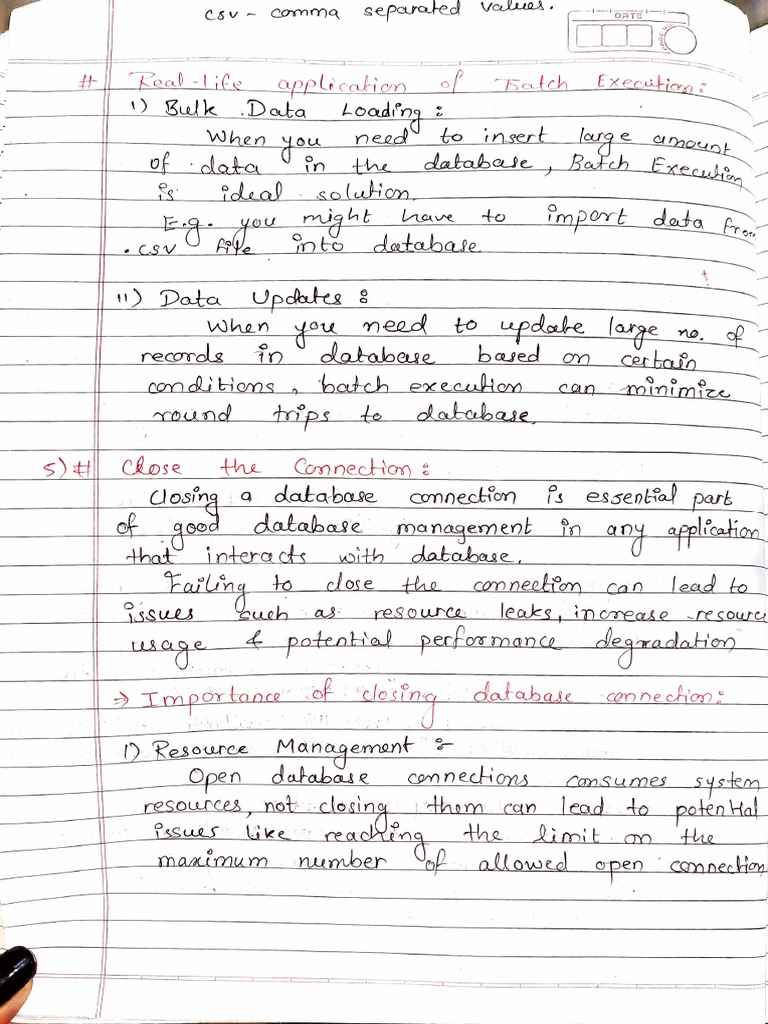 csv - comma separated values.
DATE
# Real-life application of Batch Execution:
1) Bulk Data Loading:
When you need to insert large amount
of data in the database, Batch Execution
is ideal solution.
E.g. you might have to import data from
.csv file into database
11) Data Updates:
When you need to update large no. of
records in database based on certain
conditions, batch execution can minimize
round trips to database.
5) # Close the Connection:
Closing a database connection is essential part
of good database management in any application
that interacts with database.
Failing to close the connection can lead to
issues such as resource leaks, increase resource
usage & potential performance degradation
→ Importance of closing database connection:
1) Resource Management :-
Open database connections consumes system
resources, not closing them can lead to potential
issues like reaching the limit on the
maximum number of allowed open connection